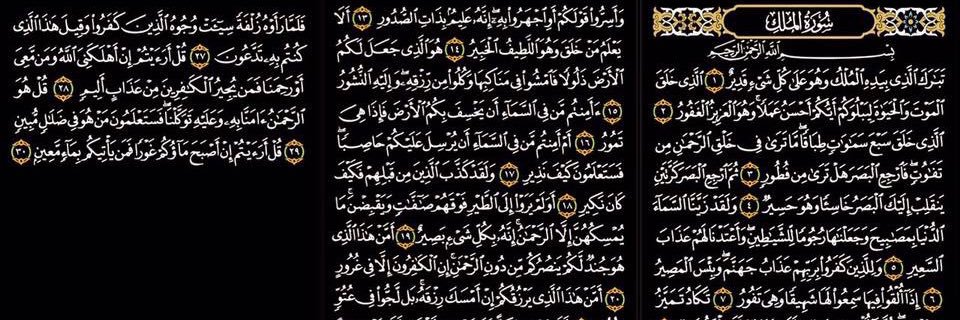 سُورَةُ المُلْكِ
بِسْمِ اللَّهِ الرَّحْمَٰنِ الرَّحِيمِ
تَبَٰرَكَ الَّذِى بِيَدِهِ الْمُلْكُ وَهُوَ عَلَىٰ كُلِّ شَىْءٍ قَدِيرٌ ١ الَّذِى خَلَقَ
الْمَوْتَ وَالْحَيَوٰةَ لِيَبْلُوَكُمْ أَيُّكُمْ أَحْسَنُ عَمَلًا وَهُوَ الْعَزِيزُ الْغَفُورُ ٢
الَّذِى خَلَقَ سَبْعَ سَمَٰوَٰتٍ طِبَاقًا مَّا تَرَىٰ فِى خَلْقِ الرَّحْمَٰنِ مِن
تَفَٰوُتٍ فَارْجِعِ الْبَصَرَ هَلْ تَرَىٰ مِن فُطُورٍ ٣ ثُمَّ ارْجِعِ الْبَصَرَ كَرَّتَيْنِ
يَنقَلِبْ إِلَيْكَ الْبَصَرُ خَاسِئًا وَهُوَ حَسِيرٌ ٤ وَلَقَدْ زَيَّنَّا السَّمَآءَ
الدُّنْيَا بِمَصَٰبِيحَ وَجَعَلْنَٰهَا رُجُومًا لِّلشَّيَٰطِينِ وَأَعْتَدْنَا لَهُمْ عَذَابَ
السَّعِيرِ ٥ وَلِلَّذِينَ كَفَرُوا بِرَبِّهِمْ عَذَابُ جَهَنَّمَ وَبِئْسَ الْمَصِيرُ
٦ إِذَآ أُلْقُوا فِيهَا سَمِعُوا لَهَا شَهِيقًا وَهِىَ تَفُورُ ٧ تَكَادُ تَمَيَّزُ
وَأَسِرُّوا قَوْلَكُمْ أَوِ اجْهَرُوا بِهِ إِنَّهُ عَلِيمٌ بِذَاتِ الصُّدُورِ ١٣ أَلَا
يَعْلَمُ مَنْ خَلَقَ وَهُوَ اللَّطِيفُ الْخَبِيرُ ١٤ هُوَ الَّذِى جَعَلَ لَكُمُ
الْأَرْضَ ذَلُولًا فَامْشُوا فِى مَنَاكِبِهَا وَكُلُوا مِن رِّزْقِهِ وَإِلَيْهِ النُّشُورُ
١٥ ءَأَمِنتُم مَّن فِى السَّمَآءِ أَن يَخْسِفَ بِكُمُ الْأَرْضَ فَإِذَا هِىَ
تَمُورُ ١٦ أَمْ أَمِنتُم مَّن فِى السَّمَآءِ أَن يُرْسِلَ عَلَيْكُمْ حَاصِبًا
فَسَتَعْلَمُونَ كَيْفَ نَذِيرِ ١٧ وَلَقَدْ كَذَّبَ الَّذِينَ مِن قَبْلِهِمْ فَكَيْفَ
كَانَ نَكِيرِ ١٨ أَوَلَمْ يَرَوْا إِلَى الطَّيْرِ فَوْقَهُمْ صَٰٓفَّٰتٍ وَيَقْبِضْنَ مَا
يُمْسِكُهُنَّ إِلَّا الرَّحْمَٰنُ إِنَّهُ بِكُلِّ شَىْءٍ بَصِيرٌ ١٩ أَمَّنْ هَٰذَا الَّذِى
هُوَ جُندٌ لَّكُمْ يَنصُرُكُم مِّن دُونِ الرَّحْمَٰنِ إِنِ الْكَٰفِرُونَ إِلَّا فِى غُرُورٍ
٢٠ أَمَّنْ هَٰذَا الَّذِى يَرْزُقُكُمْ إِنْ أَمْسَكَ رِزْقَهُ بَل لَّجُّوا فِى عُتُوٍّ
فَلَمَّا رَأَوْهُ زُلْفَةً سِيٓـَٔتْ وُجُوهُ الَّذِينَ كَفَرُوا وَقِيلَ هَٰذَا الَّذِى
كُنتُم بِهِ تَدَّعُونَ ٢٧ قُلْ أَرَءَيْتُمْ إِنْ أَهْلَكَنِىَ اللَّهُ وَمَن مَّعِىَ
أَوْ رَحِمَنَا فَمَن يُجِيرُ الْكَٰفِرِينَ مِنْ عَذَابٍ أَلِيمٍ ٢٨ قُلْ هُوَ
الرَّحْمَٰنُ ءَامَنَّا بِهِ وَعَلَيْهِ تَوَكَّلْنَا فَسَتَعْلَمُونَ مَنْ هُوَ فِى ضَلَٰلٍ مُّبِينٍ
٢٩ قُلْ أَرَءَيْتُمْ إِنْ أَصْبَحَ مَآؤُكُمْ غَوْرًا فَمَن يَأْتِيكُم بِمَآءٍ مَّعِينٍ ٣٠